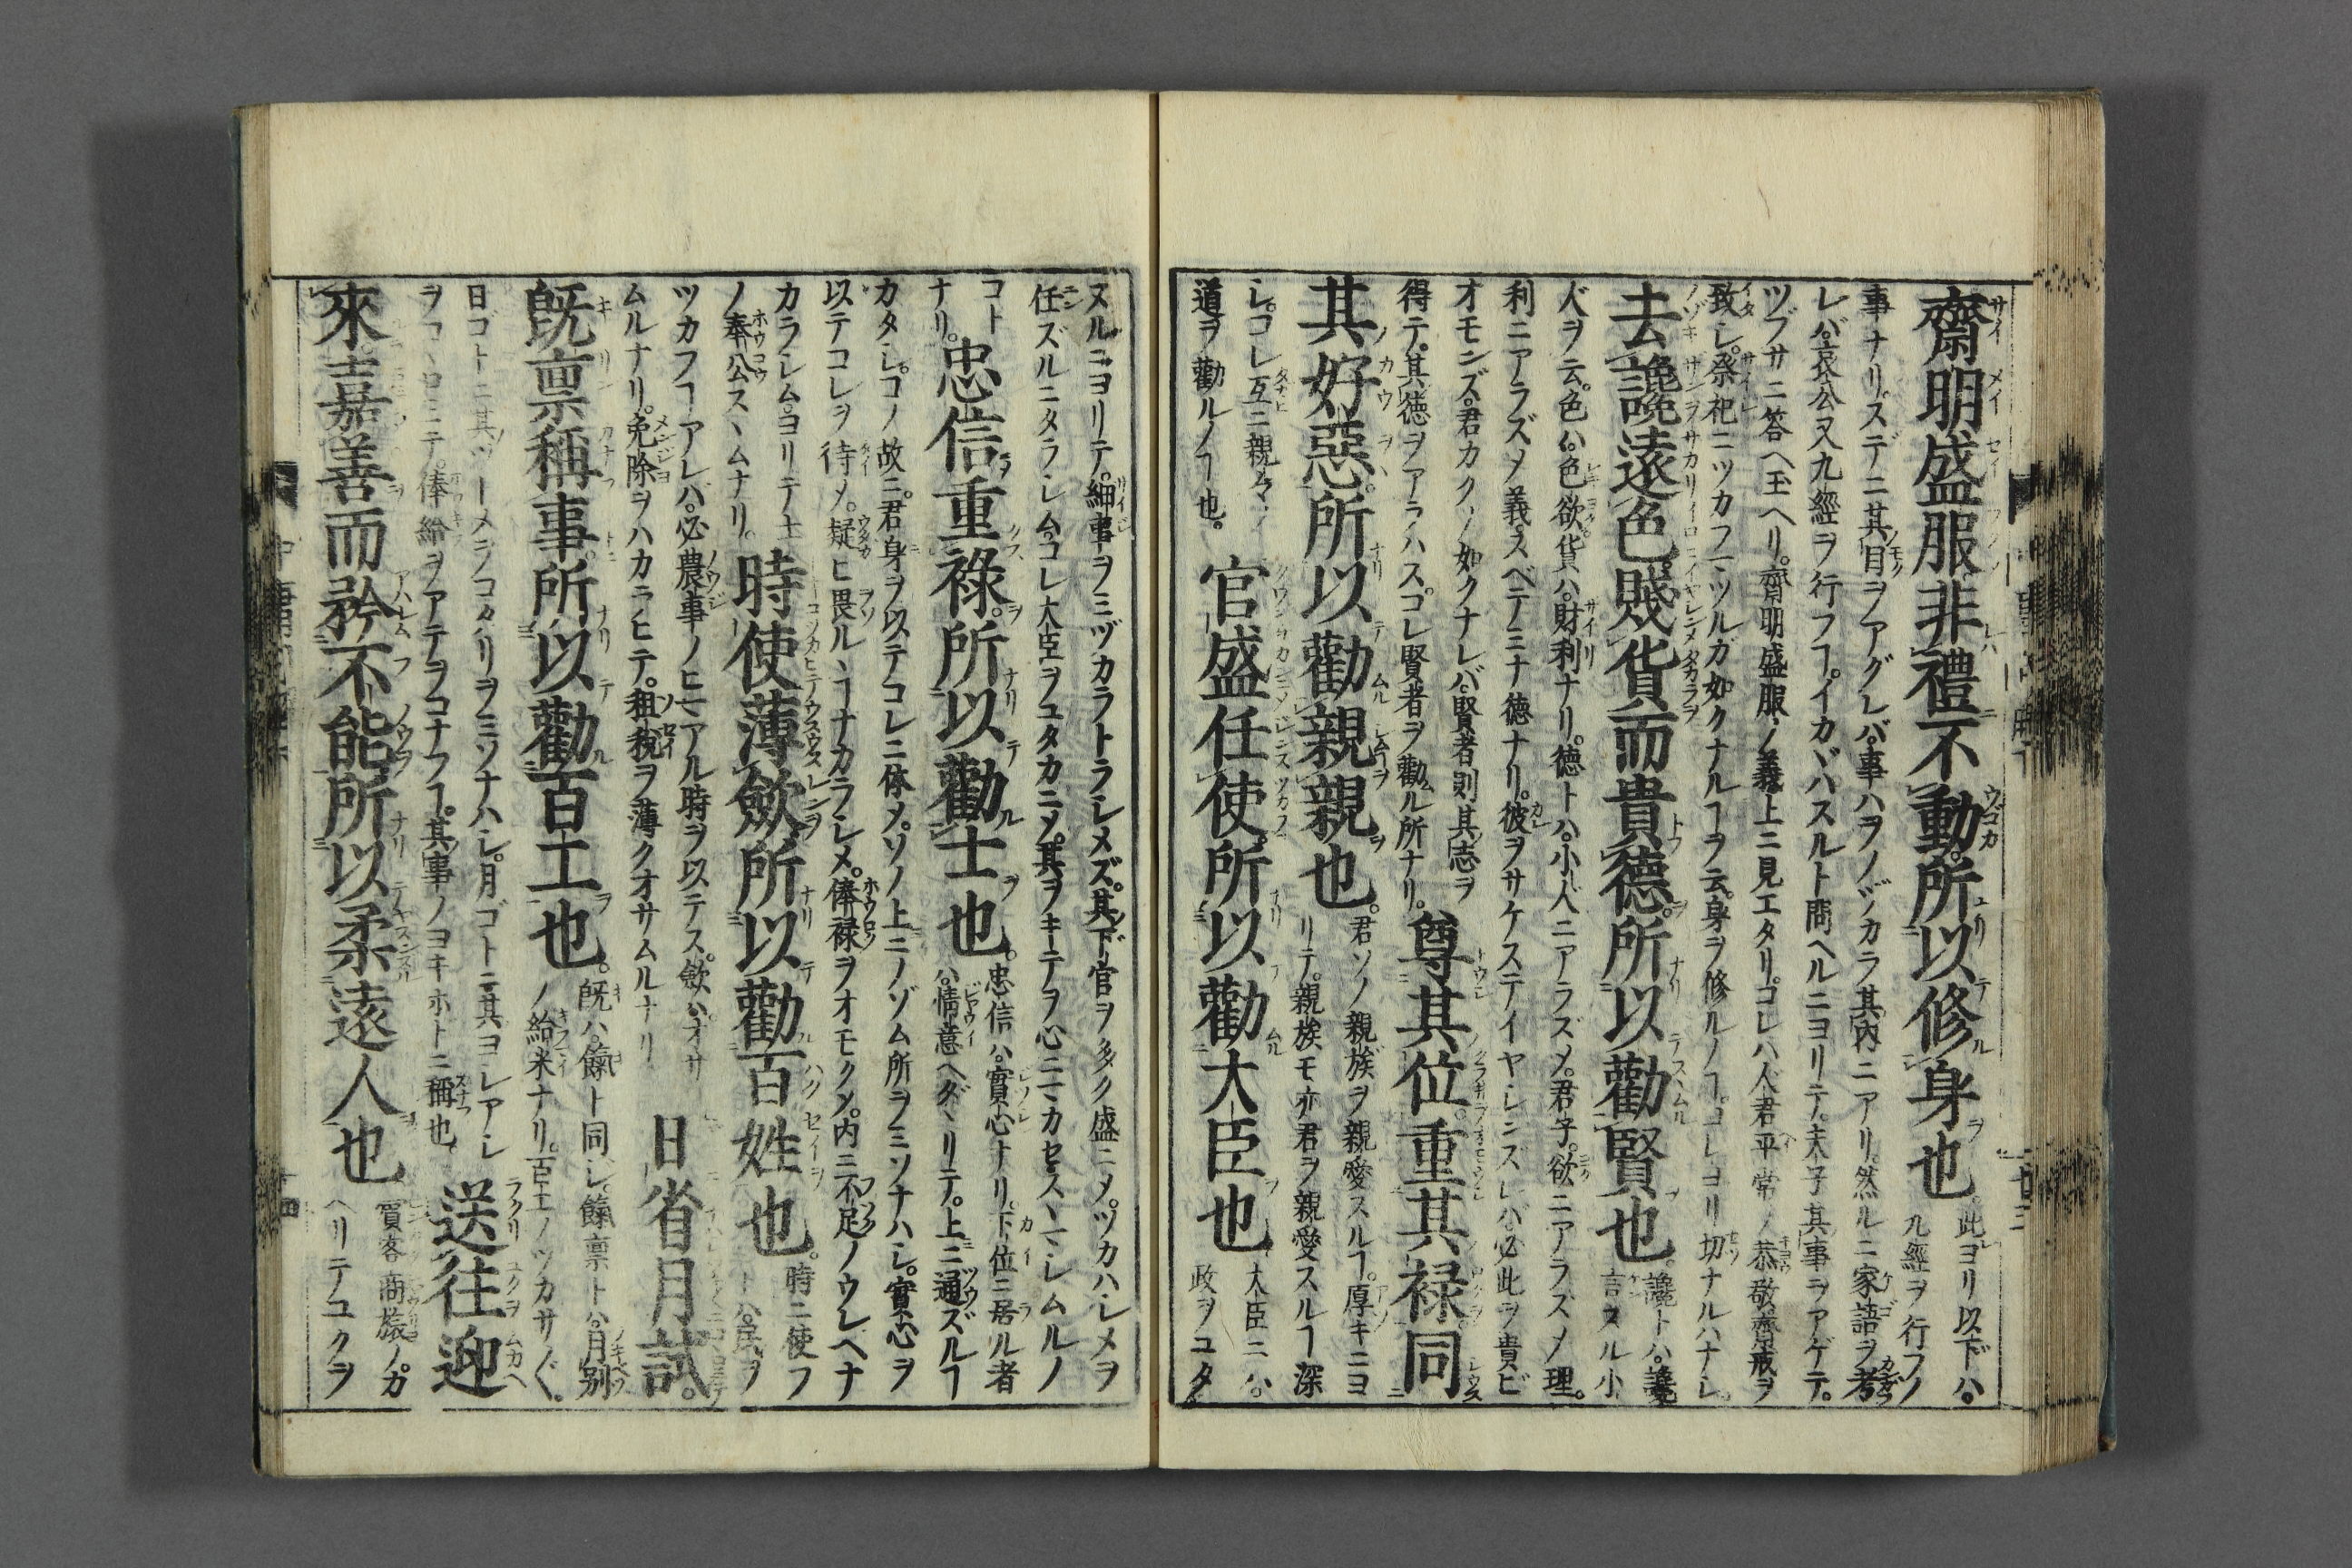 齋明盛服非禮不動所以修身也 此ヨリ以下ハ九經ヲ行フノ
事ナリスデニ其目ヲアグレバ事ハヲノヅカラ其内ニアリ然ルニ家語ヲ考
レバ哀公又九經ヲ行フヿイカヾハスルト問ヘルニヨリテ夫子其事ヲアゲテ
ツブサニ答ヘ玉ヘリ齊明盛服ノ義上ニ見エタリコレハ人君平常ノ恭敬齊戒ヲ
致シ祭祀ニツカフマツルガ如クナルヿヲ云身ヲ修ルノヿコレヨリ切ナルハナシ
去讒遠色賤貨而貴德所以勸賢也 讒トハ讒言スル小
人ヲ云色ハ色欲貨ハ財利ナリ德トハ小人ニアラズメ君子欲ニアラズメ理
利ニアラズメ義スベテミナ德ナリ彼ヲサケステイヤシンズレバ必此ヲ貴ビ
オモンズ君カクノ如クナレバ賢者則其志ヲ
得テ其德ヲアラハスコレ賢者ヲ勸ル所ナリ 尊其位重其禄同
其好惡所以勸親親也 君ソノ親族ヲ親愛スルヿ厚キニヨリテ親族モ亦君ヲ親愛スルヿ深
シコレ互ニ親ム
道ヲ勸ルノヿ也 官盛任使所以勸大臣也 大臣ニハ政ヲユタ
ヌルニヨリテ細事ヲミヅカラトラシメズ其下官ヲ多ク盛ニメツカハシメヲ
任ズルニタラシムコレ大臣ヲユタカニメ其ヲキテヲ心ニマカセスヽマシムルノ
コト
ナリ 忠信重祿所以勸士也 忠信ハ實心ナリ下位ニ居ル者ハ情意ヘダヽリテ上ニ通ズルヿ
カタシコノ故ニ君身ヲ以テコレニ体メソノ上ニノゾム所ヲミソナハシ實心ヲ
以テコレヲ待メ疑ヒ畏ルヽヿナカラシメ俸禄ヲオモクメ内ニ不足ノウレヘナ
カラシムヨリテ士
ノ奉公スヽムナリ 時使薄斂所以勸百姓也 時ニ使フトハ民ヲ
ツカフヿアレハ必農事ノヒマアル時ヲ以テス斂ハオサ
ムルナリ免除ヲハカラヒテ租税ヲ薄クオサムルナリ 日省月試
既稟稱事所以勸百工也 既ハ餼ト同シ餼稟トハ月別ノ給米ナリ百工ノツカサ〴〵
日ゴトニ其ツトメヲコタリヲミソナハシ月ゴトニ其ヨシアシ
ヲコヽロミテ俸給ヲアテヲコナフヿ其事ノヨキホトニ稱也 送往迎
來嘉善而矜不能所以柔遠人也 賈客商旅ノカヘリテユクヲ